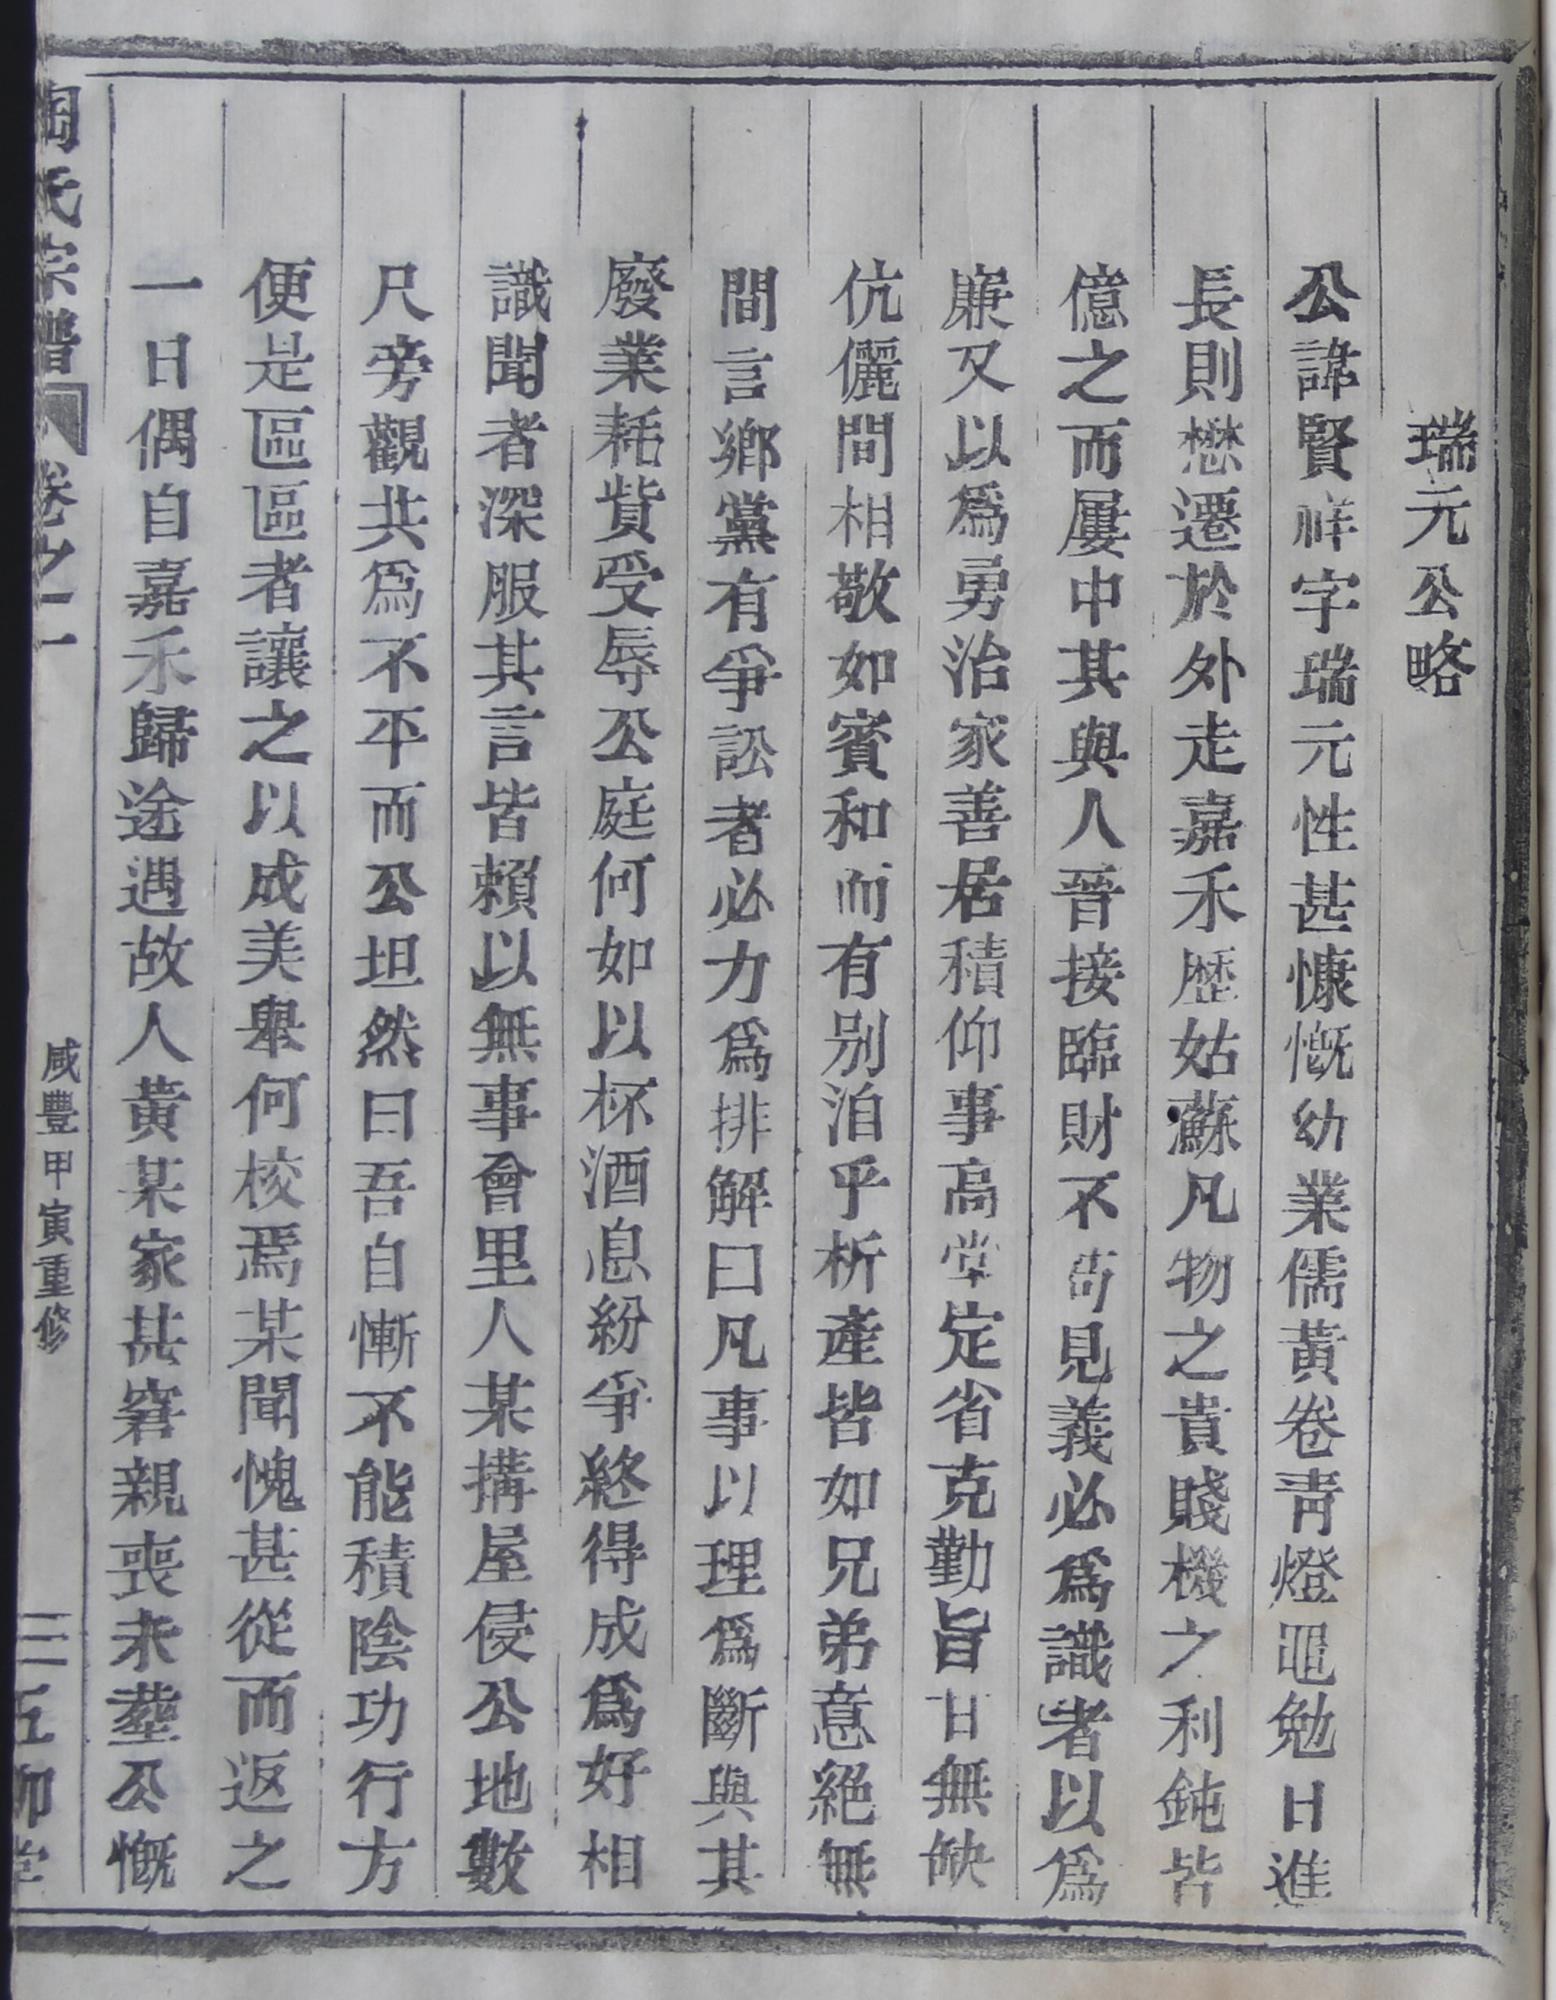 瑞元公略
公諱賢祥字瑞元性甚慷慨幼業儒黃卷靑燈黽勉日進
長則懋遷於外走嘉禾歷姑蘇凡物之貴賤機之利鈍皆
億之而屢中其與人晉接臨財不茍見義必爲識者以爲
亷又以爲勇治家善居積仰事高堂定省克勤旨甘無缺
伉儷間相敬如賓和而有别洎乎析產皆如兄弟意絕無
間言鄉黨有爭訟者必力爲排解曰凡事以理爲斷與其
廢業耗貲受辱公庭何如以杯酒息紛爭終得成爲好相
識聞者深服其言皆賴以無事會里人某搆屋侵公地數
尺旁觀共爲不平而公坦然曰吾自慚不能積陰功行方
便是區區者讓之以成美舉何校焉某聞愧甚從而返之
一日偶自嘉禾歸途遇故人黃某家甚窘親喪未塟公慨
陶氏宗譜 卷之一 咸豐甲寅重修 三 五柳堂